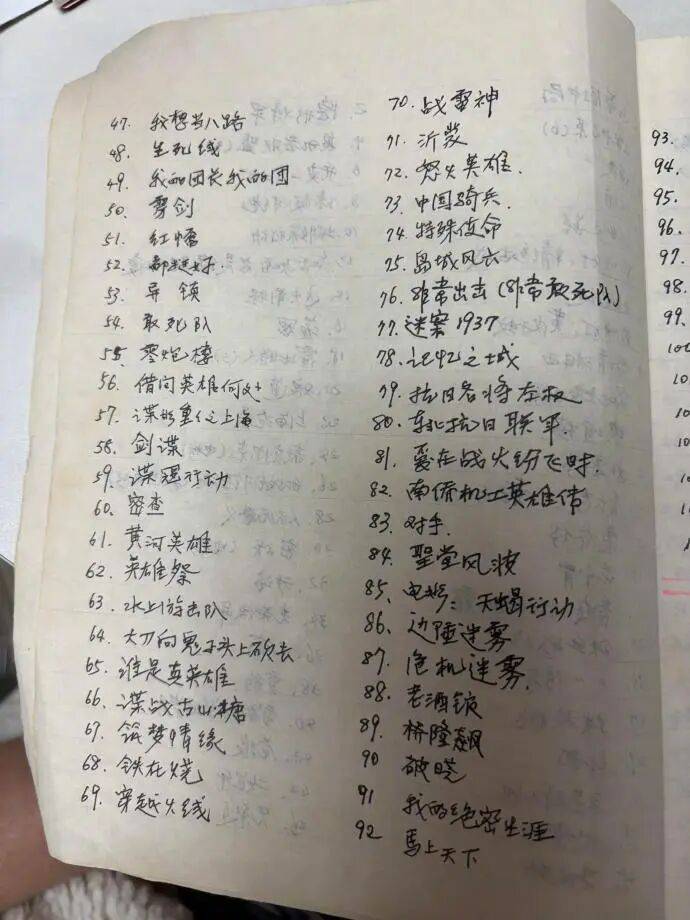 47. 我想当八路
48. 生死线
49. 我的团长我的团
50. 雾剑
51. 红糖
52.
53. 导锁
54. 敢死队
55. 零炮楼
56. 借问英雄何处
57. 谍影重重之上海
58. 剑谍
59. 谍冠行动
60. 密查
61. 黄河英雄
62. 英雄祭
63. 水上游击队
64. 大刀向鬼子头上砍去
65. 谁是真英雄
66. 谍战古山塘
67. 筑梦情缘
68. 铁在烧
69. 穿越火线
70. 战雷神
71. 沂蒙
72. 怒火英雄.
73. 中国骑兵
74. 特殊使命
75. 岛城风云
76. 非常出击(非常敢死队)
77. 迷案1937
78. 记忆之城
79. 抗日名将左权
80. 东北抗日联军.
81. 爱在战火纷飞时.
82. 南侨机工英雄传
83. 对手.
84. 聖堂风波
85. 天蝎行动
86. 边陲迷雾
87. 危机迷雾.
88. 老酒馆
89. 桥隆飙
90 破晓
91 我的绝密生涯
92 馬上天下
93.
94.
95.
96.
97.
98.
99.